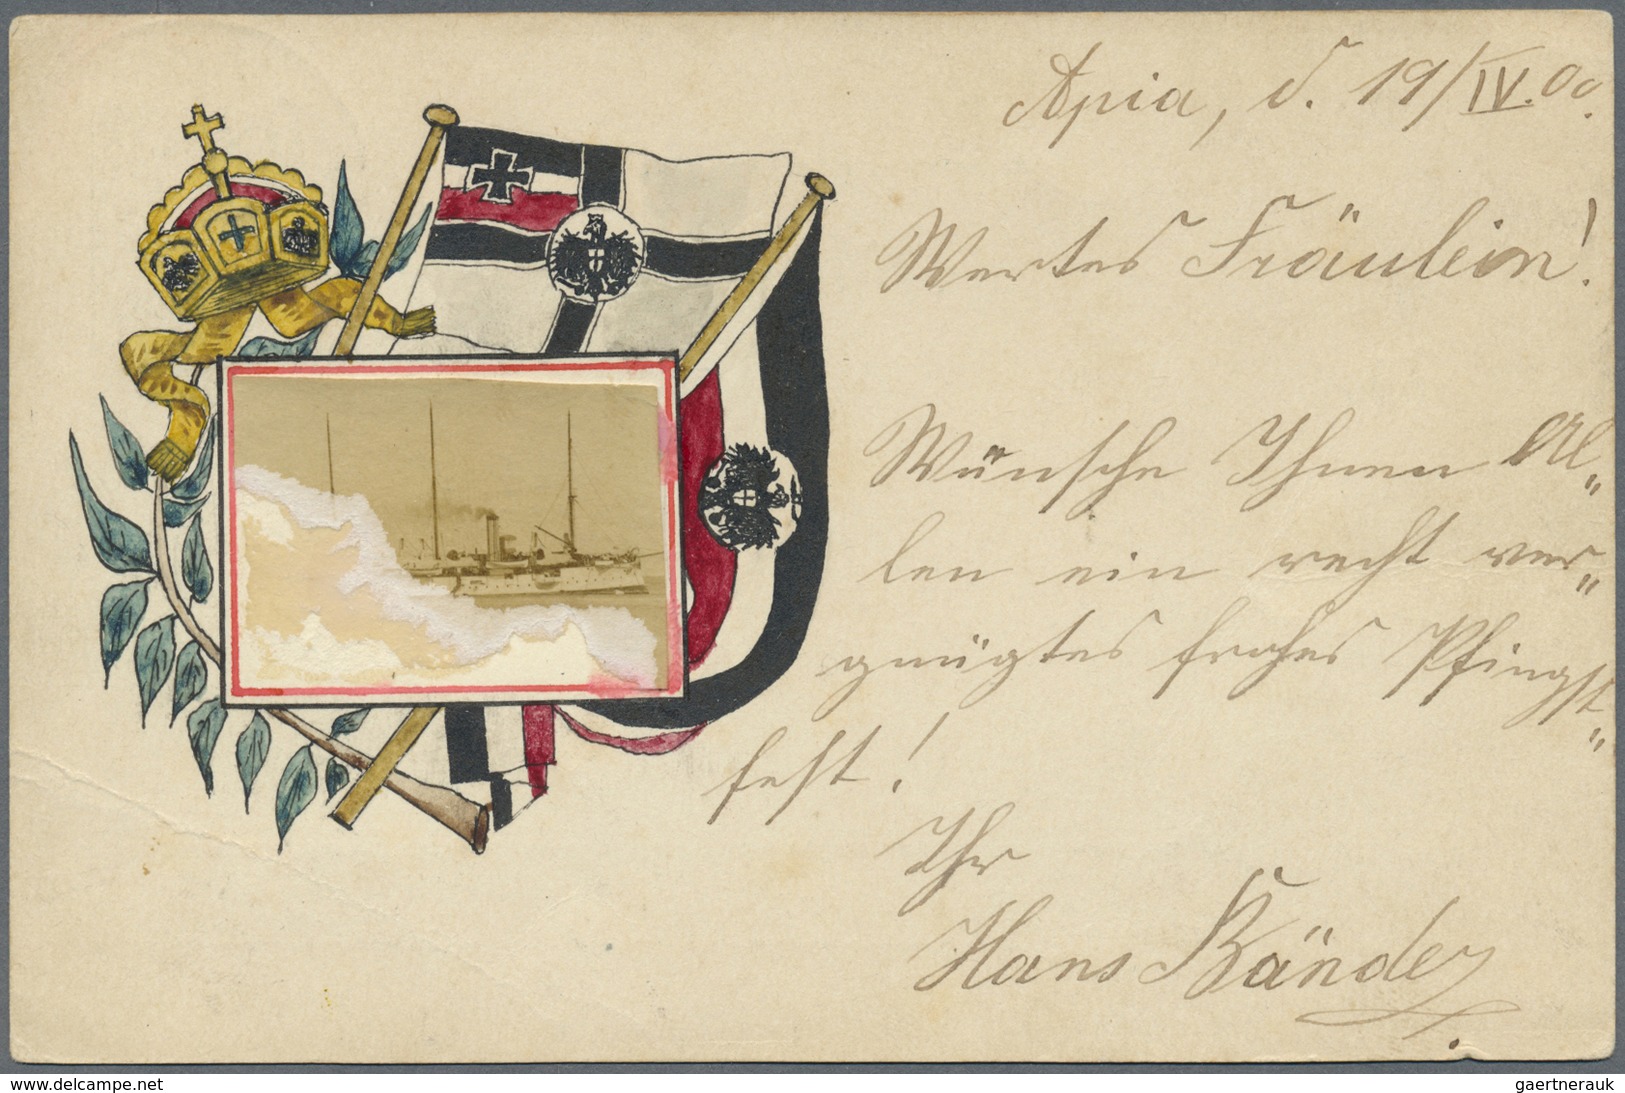 Apia, d. 19/IV.00.
Wertes Fräulein!
Wünsche Ihnen Al„
len ein recht ver„
gnügtes frohes Pfingst„
fest!
Ihr
Hans
delcampe.net
gaertnerauk